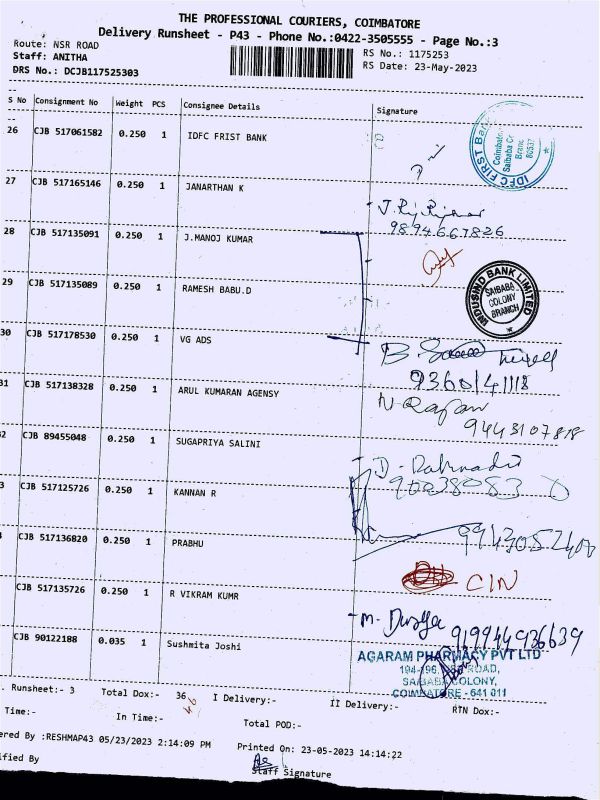 THE PROFESSIONAL COURIERS, COIMBATORE
Delivery Runsheet - P43 - Phone No.:0422-3505555 - Page No.:3
Route: NSR ROAD
Staff: ANITHA
DRS No.: DCJB117525303
RS No.: 1175253
RS Date: 23-May-2023
S No Consignment No Weight PCS Consignee Details Signature
26 CJB 517061582 0.250 1 IDFC FRIST BANK
IDFC FIRST Bank
27 CJB 517165146 0.250 1 JANARTHAN K
9894667826
28 CJB 517135091 0.250 1 J.MANOJ KUMAR
29 CJB 517135089 0.250 1 RAMESH BABU.D
INDUSIND BANK LIMITED
SAIBABA
COLONY
BRANCH
30 CJB 517178530 0.250 1 VG ADS
9360141118
31 CJB 517138328 0.250 1 ARUL KUMARAN AGENSY
N Rajan
9443107818
2 CJB 89455048 0.250 1 SUGAPRIYA SALINI
3 CJB 517125726 0.250 1 KANNAN R
CJB 517136820 0.250 1 PRABHU
CJB 517135726 0.250 1 R VIKRAM KUMR
CIN
CJB 90122188 0.035 1 Sushmita Joshi
919944936639
AGARAM PHARMACY PVT LTD
ROAD,
SAIBABA COLONY,
COIMBATORE - 641 011
Runsheet:- 3 Total Dox:- 36 I Delivery:- II Delivery:- RTN Dox:-
Time:- In Time:- Total POD:-
ered By :RESHMAP43 05/23/2023 2:14:09 PM Printed On: 23-05-2023 14:14:22
ified By Staff Signature